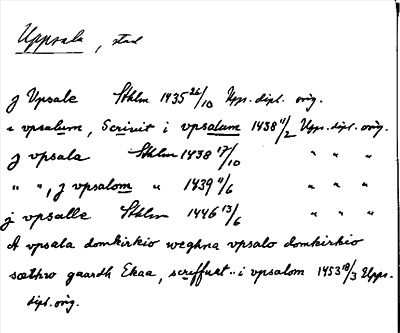 Uppsala, stad
j Vpsale Sthlm 1435 26/10 Upps. dipl. orig.
" vpsalum, Scrivit i vpsalum 1438 4/2 Upps. dipl. orig.
j vpsala Sthlm 1438 17/10 " " "
" ", j vpsalom " 1439 4/6 " " "
j vpsalle Sthlm 1446 13/6 " " "
A vpsala domkirkio weghna vpsalo domkirkio
sæthro gaardh Ekaa, screffuit i vpsalom 1453 18/3 Upps.
dipl. orig.